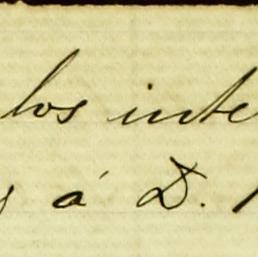 los inte
á D.